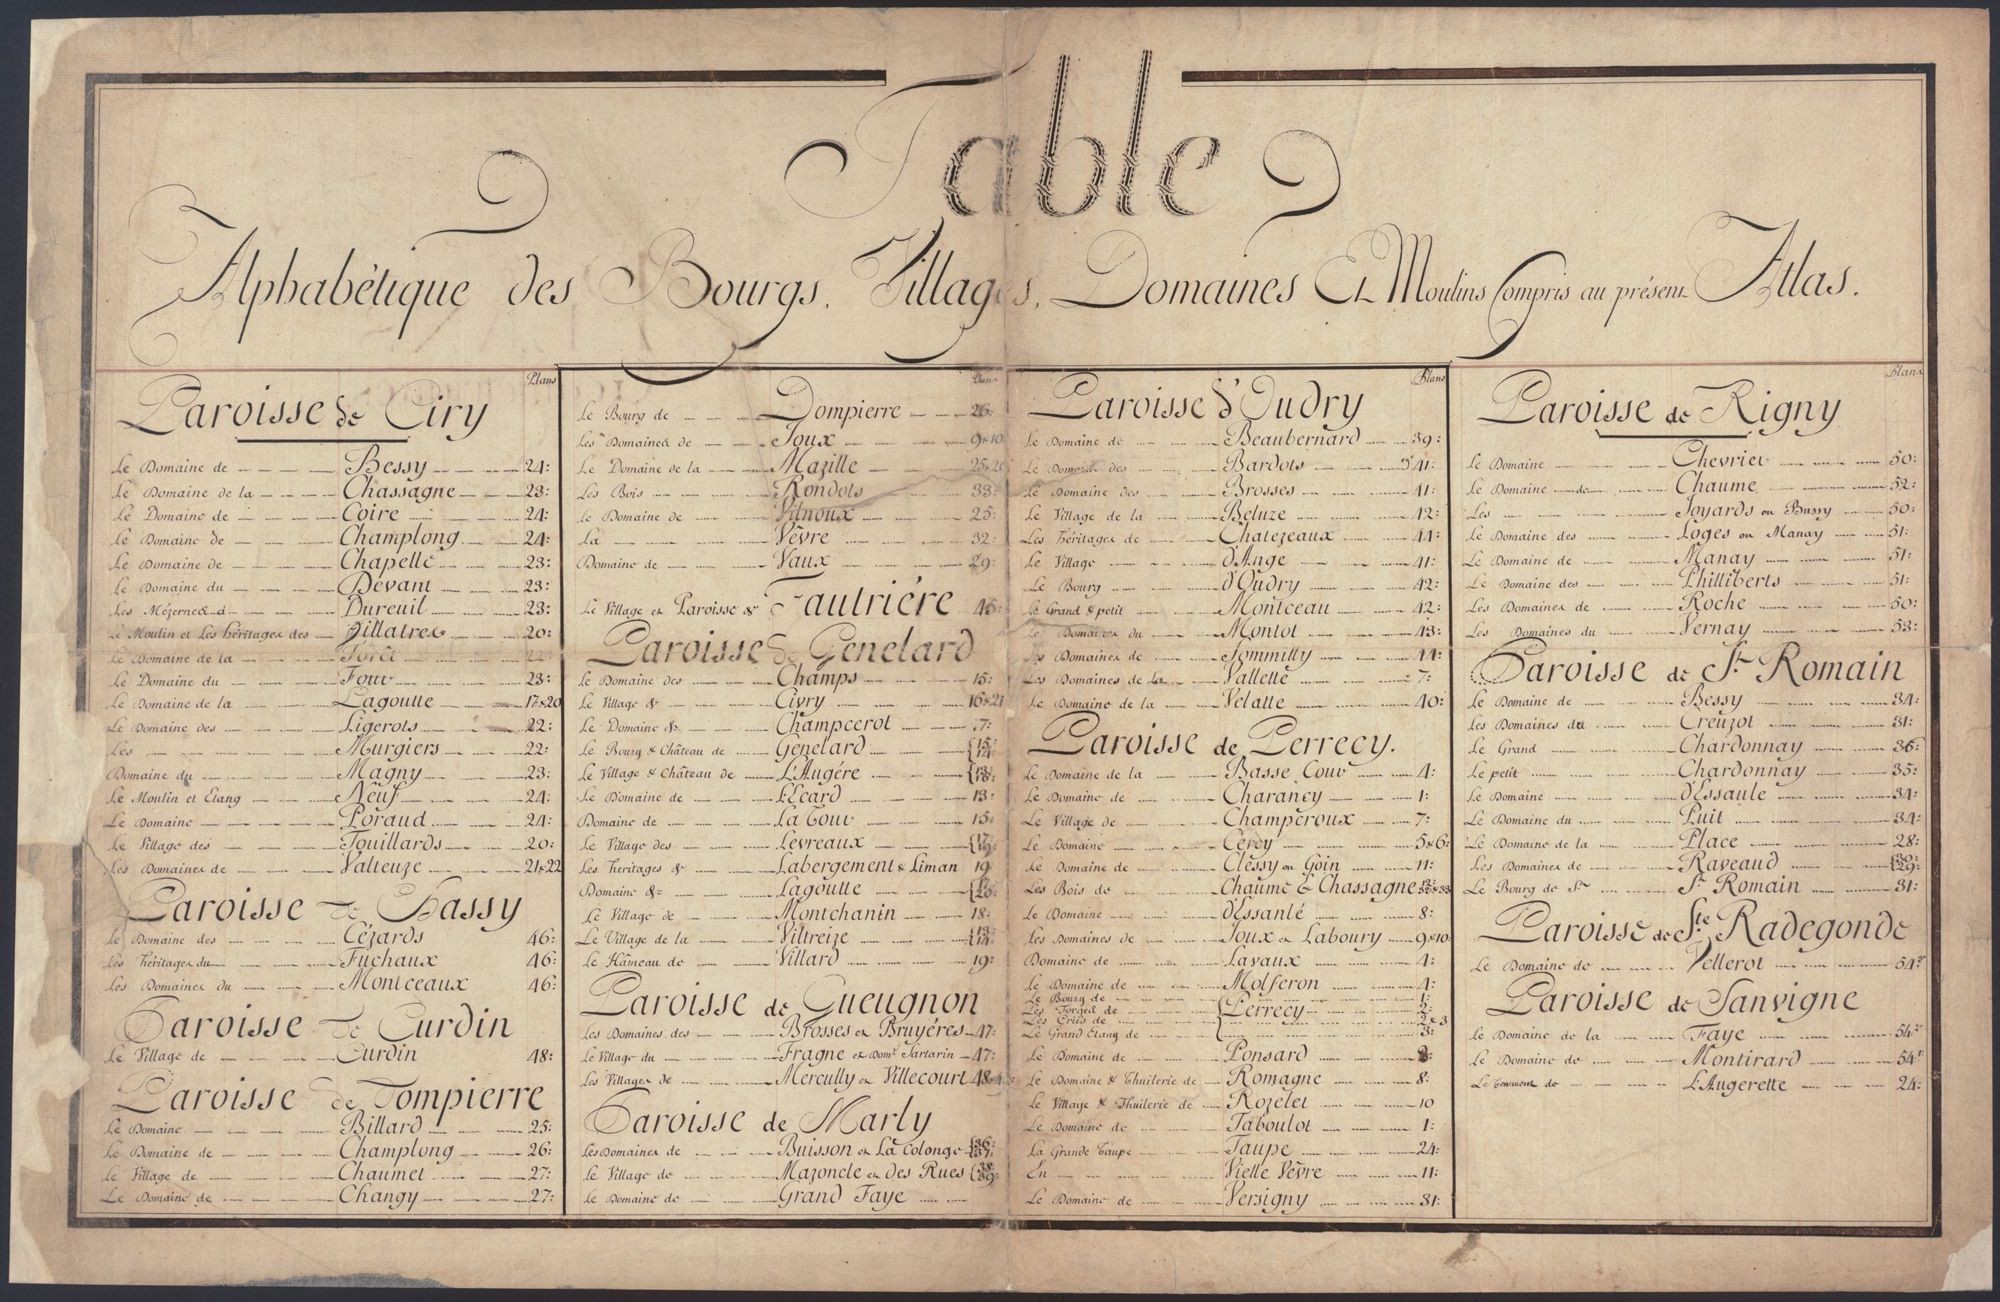 Table
Alphabétique des Bourgs. Villages. Domaines Et Moulins Compris au présent Atlas.
Plans
Paroisse de Ciry
Le Domaine de Bessy 24:
Le Domaine de la Chassagne 23:
Le Domaine de Coire 24:
Le Domaine de Champlong 24:
Le Domaine de Chapelle 23:
Le Domaine du Devant 23:
Les Mézernes d Dureuil 23:
Le Moulin et Les héritages des Fillatres 20:
Le Domaine de la Forêt
Le Domaine du Four 23:
Le Domaine de la Lagoutte 17&20
Le Domaine des Ligerots 22:
Les Murgiers 22:
Domaine du Magny 23:
Le Moulin et Etang Neuf 24:
Le Domaine Poraud 24:
Le Village des Touillards 20:
Les Domaines de Valteuze 21&22
Paroisse de Chassy
Le Domaine des Cézards 46:
Les héritages du Fuchaux 46:
Les Domaines du Montceaux 46:
Paroisse de Curdin
Le Village de Curdin 48:
Paroisse de Dompierre
Le Domaine Billard 25:
Le Domaine de Champlong 26:
Le Village de Chaumet 27:
Le Domaine de Changy 27:
Plans
Le Bourg de Dompierre 26:
Les Domaines de Joux 9&10
Le Domaine de la Mazille 25&26
Les Bois Rondots 33:
Le Domaine de Vilnoux 25:
La Vevre 32:
Domaine de Vaux 29:
Le Village et Paroisse de Fautriére 45:
Paroisse de Genelard
Le Domaine des Champs 15:
Le Village de Civry 16&21
Le Domaine de Champcerot 17:
Le Bourg & Château de Genelard 15: 14:
Le Village & Château de L'Augére 13: 18:
Le Domaine de L'Ecard 13:
Domaine de La Cour 15:
Le Village des Levreaux 17: 19:
Les heritages de Labergement & Liman 19
Domaine de Lagoutte
Le Village de Montchanin 18:
Le Village de la Viltreize 13: 14:
Le Hâmeau de Villard 19:
Paroisse de Gueugnon
Les Domaines des Brosses et Bruyéres 47:
Le Village du Fragne et Domne Sartarin 47:
Les Villages de Mercully et Villecourt 48
Paroisse de Marly
Les Domaines de Buisson et La Colonge 36: 37:
Le Village de Mazoncle et des Rues 38: 39:
Le Domaine de Grand Faye
Plans
Paroisse d'Oudry
Le Domaine de Beaubernard 39:
Le Domaine des Bardots 41:
Le Domaine des Brosses 41:
Le Village de la Beluze 42:
Les héritages de Chatezeaux 44:
Le Village d'Ange 41:
Le Bourg d'Oudry 42:
Le Grand & petit Montceau 42:
Le Domaines du Montot 43:
Les Domaines de Sommitty 44:
Les Domaines de la Vallette 7:
Le Domaine de la Velatte 40:
Paroisse de Perrecy.
Le Domaine de la Basse Cour 4:
Le Domaine de Charancy 1:
Le Village de Champeroux 7:
Le Domaine Cercy 5&6:
Le Domaine de Clessy ou Goin 11:
Les Bois de Chaume & Chassagne
Le Domaine d'Essanlé 8:
Les Domaines de Joux et Laboury 9&10
Domaine de Lavaux 4:
Le Domaine de Molferon 4:
Le Bourg de 1:
Les Forges de Perrecy 2:
Les Eries de 2&3
Le Grand Etang de 3:
Le Domaine de Ponsard 8:
Le Domaine & Thuilerie de Romagne 8:
Le Village & Thuilerie de Rozelet 10
Le Domaine de Taboulot 1:
La Grande Taupe Taupe 24:
En Vielle Vêvre 11:
Le Domaine de Versigny 31:
Plans
Paroisse de Rigny
Le Domaine Chevrier 50:
Le Domaine de Chaume 52:
Les Joyards ou Bussy 50:
Le Domaine des Loges ou Manay 51:
Le Domaine de Manay 51:
Le Domaine des Philliberts 51:
Les Domaines de Roche 50:
Les Domaines du Vernay 53:
Paroisse de St Romain
Le Domaine de Bessy 34:
Les Domaines du Creuzot 31:
Le Grand Chardonnay 36:
Le petit Chardonnay 35:
Le Domaine d'Essaule 34:
Le Domaine du Puit 34:
Le Domaine de la Place 28:
Les Domaines de Raveaud 30: 29:
Le Bourg de St St Romain 31:
Paroisse de Ste Radegonde
Le Domaine de Vellerot 54:
Paroisse de Sanvigne
Le Domaine de la Faye 54:
Le Domaine de Montirard 54:
Le Tenement de L'Augerette 24: